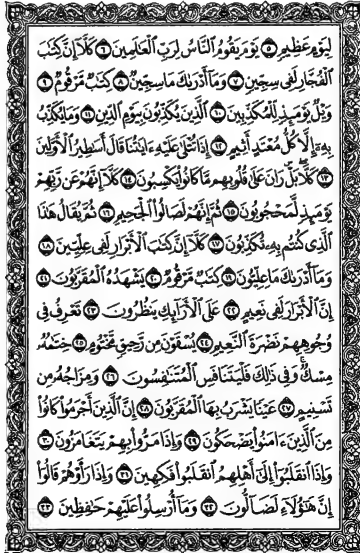 لِيَوْمٍ عَظِيمٍ ٥ يَوْمَ يَقُومُ النَّاسُ لِرَبِّ الْعَالَمِينَ ٦ كَلَّا إِنَّ كِتَابَ
الْفُجَّارِ لَفِي سِجِّينٍ ٧ وَمَا أَدْرَاكَ مَا سِجِّينٌ ٨ كِتَابٌ مَرْقُومٌ ٩
وَيْلٌ يَوْمَئِذٍ لِلْمُكَذِّبِينَ ١٠ الَّذِينَ يُكَذِّبُونَ بِيَوْمِ الدِّينِ ١١ وَمَا يُكَذِّبُ
بِهِ إِلَّا كُلُّ مُعْتَدٍ أَثِيمٍ ١٢ إِذَا تُتْلَى عَلَيْهِ ءَايَاتُنَا قَالَ أَسَاطِيرُ الْأَوَّلِينَ
١٣ كَلَّا بَلْ رَانَ عَلَى قُلُوبِهِمْ مَا كَانُوا يَكْسِبُونَ ١٤ كَلَّا إِنَّهُمْ عَنْ رَبِّهِمْ
يَوْمَئِذٍ لَمَحْجُوبُونَ ١٥ ثُمَّ إِنَّهُمْ لَصَالُوا الْجَحِيمِ ١٦ ثُمَّ يُقَالُ هَذَا
الَّذِي كُنْتُمْ بِهِ تُكَذِّبُونَ ١٧ كَلَّا إِنَّ كِتَابَ الْأَبْرَارِ لَفِي عِلِّيِّينَ ١٨
وَمَا أَدْرَاكَ مَا عِلِّيُّونَ ١٩ كِتَابٌ مَرْقُومٌ ٢٠ يَشْهَدُهُ الْمُقَرَّبُونَ ٢١
إِنَّ الْأَبْرَارَ لَفِي نَعِيمٍ ٢٢ عَلَى الْأَرَائِكِ يَنْظُرُونَ ٢٣ تَعْرِفُ فِي
وُجُوهِهِمْ نَضْرَةَ النَّعِيمِ ٢٤ يُسْقَوْنَ مِنْ رَحِيقٍ مَخْتُومٍ ٢٥ خِتَامُهُ
مِسْكٌ وَفِي ذَلِكَ فَلْيَتَنَافَسِ الْمُتَنَافِسُونَ ٢٦ وَمِزَاجُهُ مِنْ
تَسْنِيمٍ ٢٧ عَيْنًا يَشْرَبُ بِهَا الْمُقَرَّبُونَ ٢٨ إِنَّ الَّذِينَ أَجْرَمُوا كَانُوا
مِنَ الَّذِينَ ءَامَنُوا يَضْحَكُونَ ٢٩ وَإِذَا مَرُّوا بِهِمْ يَتَغَامَزُونَ ٣٠
وَإِذَا انْقَلَبُوا إِلَى أَهْلِهِمُ انْقَلَبُوا فَكِهِينَ ٣١ وَإِذَا رَأَوْهُمْ قَالُوا
إِنَّ هَؤُلَاءِ لَضَالُّونَ ٣٢ وَمَا أُرْسِلُوا عَلَيْهِمْ حَافِظِينَ ٣٣